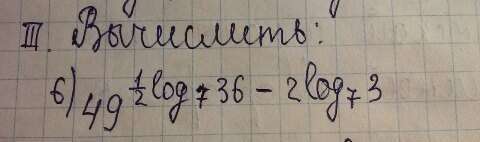 III. Вычислить:
б) 49^{\frac{1}{2}log_7 36 - 2log_7 3}